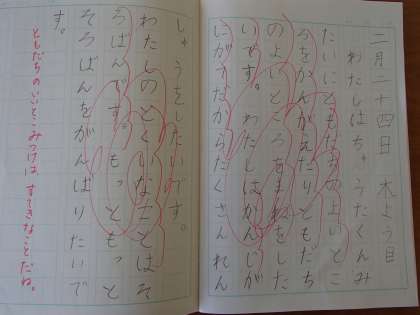 二月二十四日 木よう日
わたしはちゅうたくんみ
たいにともだちのよいとこ
ろをかんがえたりともだち
のよいところをまねをした
いです。わたしはかんじが
にがてだからたくさんれん
しゅうをしたいです。
わたしのとくいなことはそ
ろばんです。もっともっと
そろばんをがんばりたいで
す。
ともだちのいいとこみつけは、すてきなことだね。